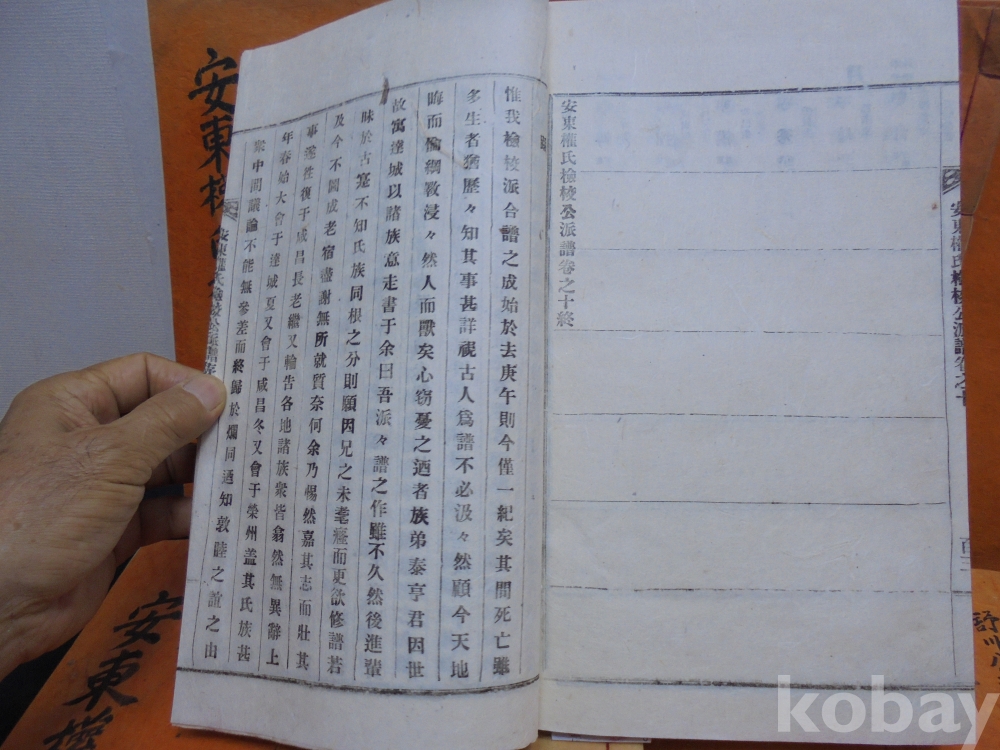 安東權氏檢校公派譜卷之十
百三
安東權氏檢校公派譜卷之十終
跋
惟我檢校派合譜之成始於去庚午則今僅一紀矣其間死亡雖
多生者猶歷々知其事甚詳視古人爲譜不必汲々然顧今天地
晦而倫綱斁浸々然人而獸矣心竊憂之迺者族弟泰亨君因世
故寓達城以諸族意走書于余曰吾派々譜之作雖不久然後進輩
昧於古寔不知氏族同根之分則願因兄之未耄癃而更欲修譜若
及今不圖成老宿盡謝無所就質奈何余乃惕然嘉其志而壯其
事遂往復于咸昌長老繼又輪告各地諸族衆皆翕然無異辭上
年春始大會于達城夏又會于咸昌冬又會于榮州盖其氏族甚
衆中間議論不能無參差而終歸於爛同迺知敦睦之誼之由
安東權氏檢校公派譜
安東權
安東權
kobay